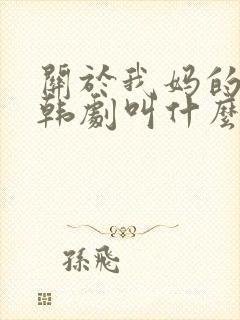 關於我妈的
韩劇叫什麼
孫飛